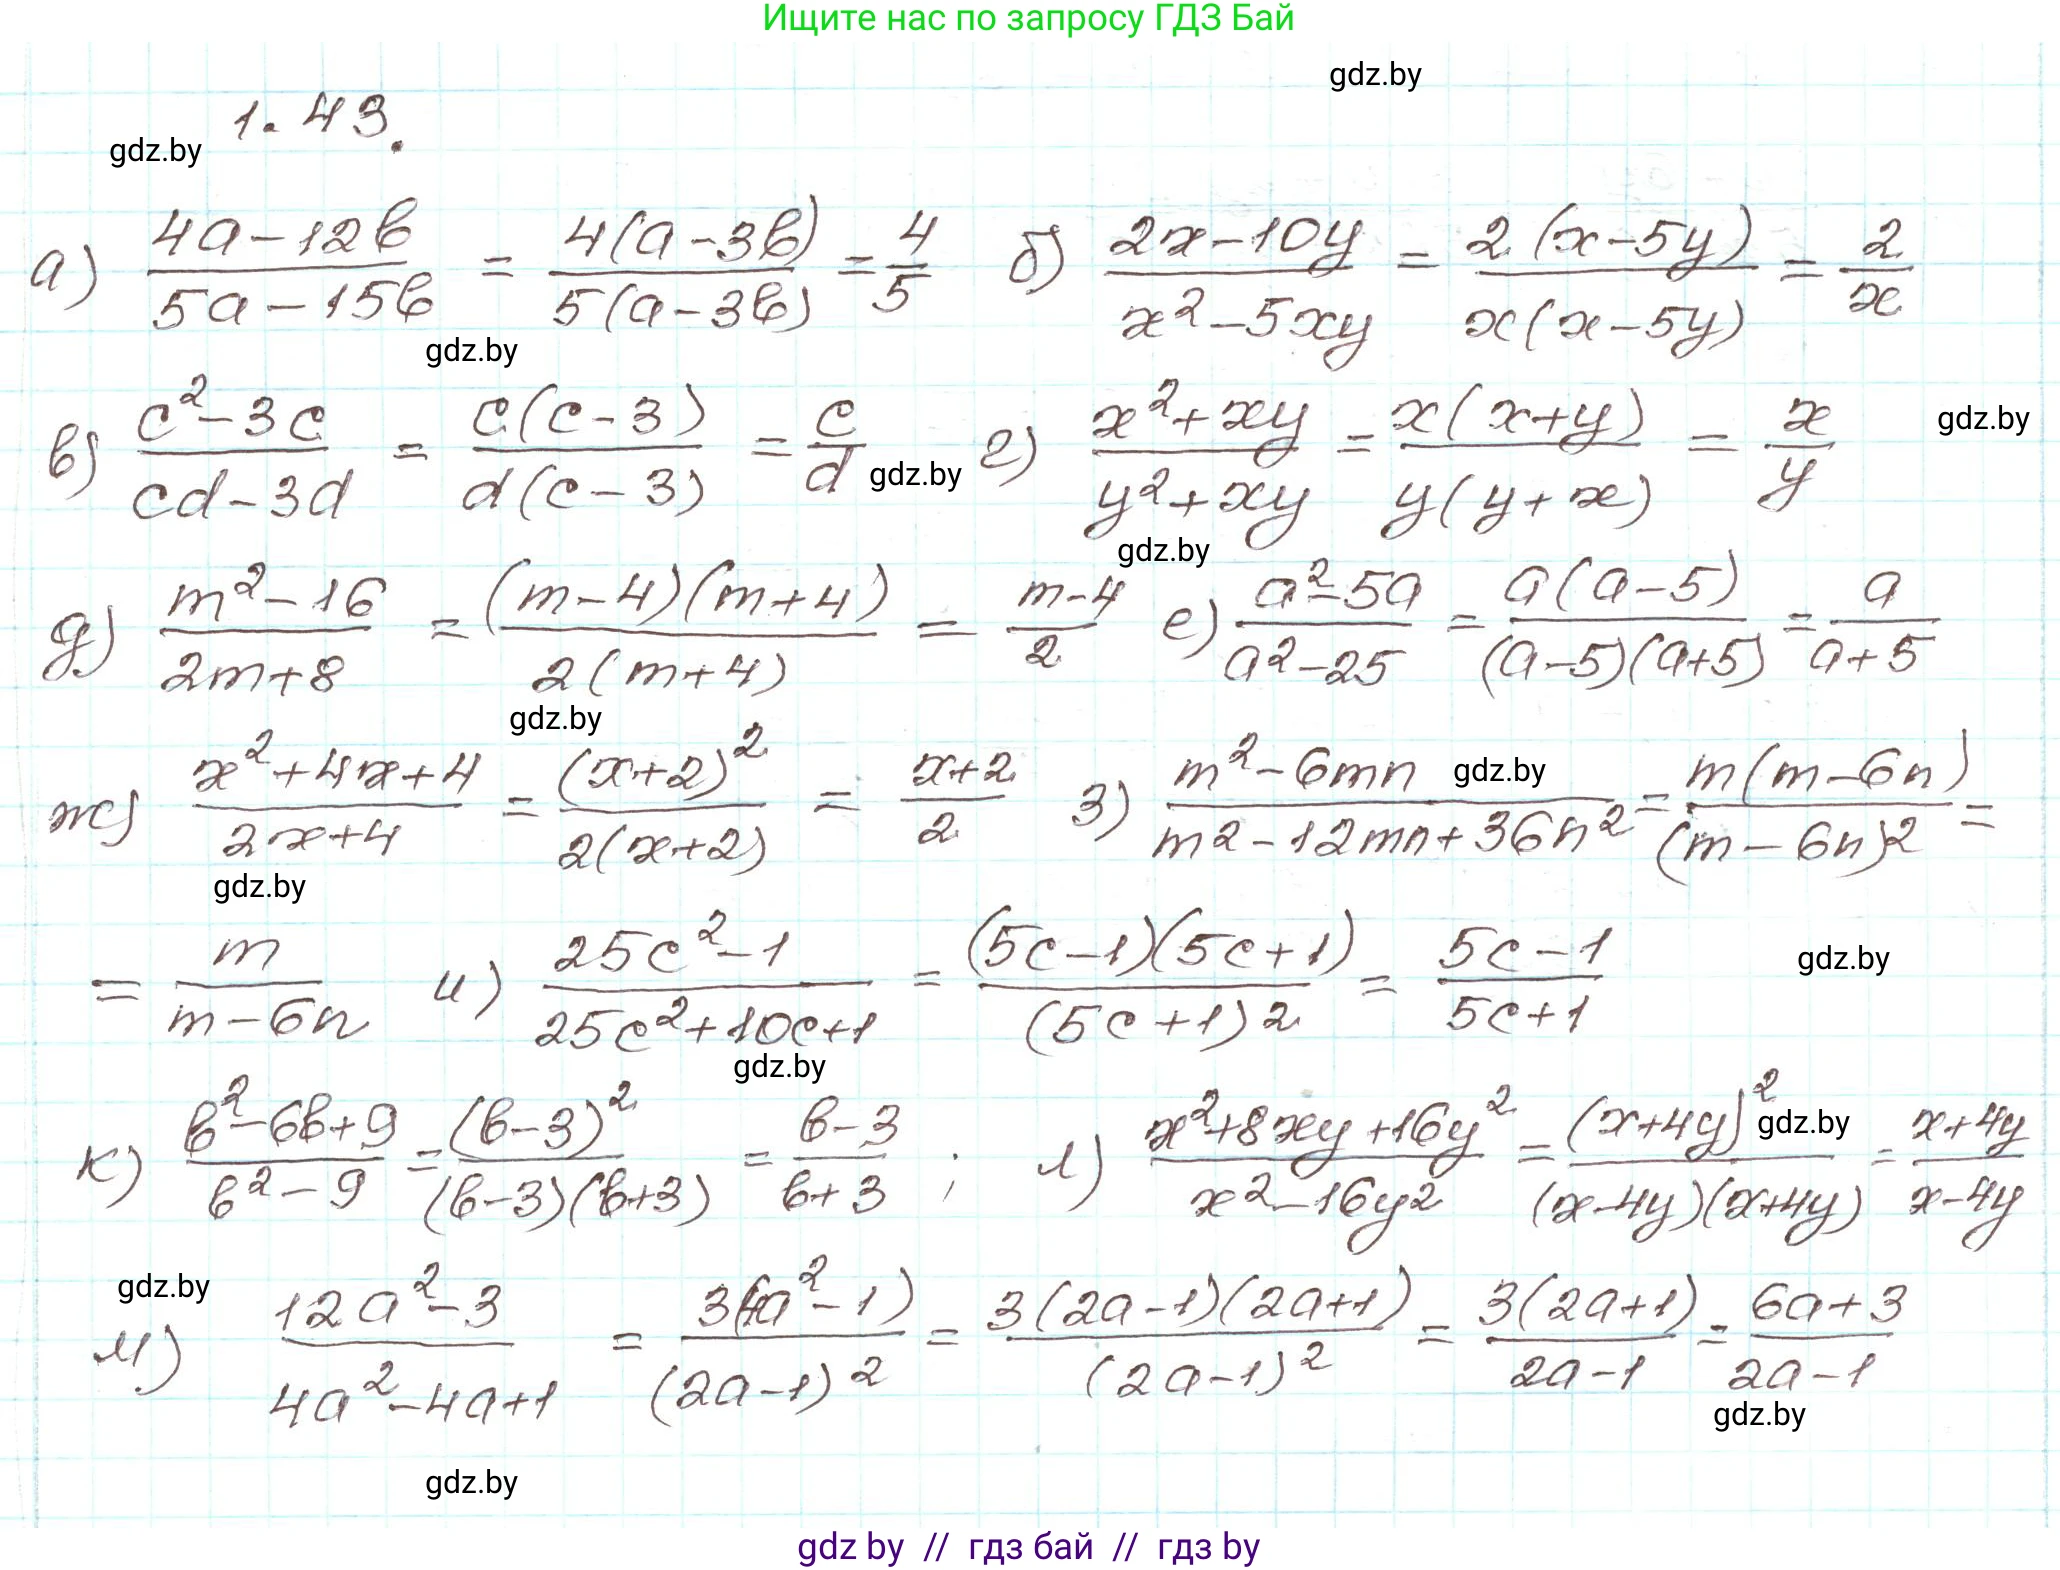 Ищите нас по запросу ГДЗ Бай
gdz.by
1.43.
gdz.by
а) (4a-12b)/(5a-15b) = 4(a-3b)/5(a-3b) = 4/5 б) (2x-10y)/(x²-5xy) = 2(x-5y)/x(x-5y) = 2/x
gdz.by
в) (c²-3c)/(cd-3d) = c(c-3)/d(c-3) = c/d gdz.by г) (x²+xy)/(y²+xy) = x(x+y)/y(y+x) = x/y gdz.by
gdz.by
д) (m²-16)/(2m+8) = (m-4)(m+4)/2(m+4) = (m-4)/2 е) (a²-5a)/(a²-25) = a(a-5)/(a-5)(a+5) = a/(a+5)
gdz.by
ж) (x²+4x+4)/(2x+4) = (x+2)²/2(x+2) = (x+2)/2 з) (m²-6mn)/(m²-12mn+36n²) = m(m-6n)/(m-6n)² = gdz.by
gdz.by
= m/(m-6n) и) (25c²-1)/(25c²+10c+1) = (5c-1)(5c+1)/(5c+1)² = (5c-1)/(5c+1) gdz.by
gdz.by
к) (b²-6b+9)/(b²-9) = (b-3)²/(b-3)(b+3) = (b-3)/(b+3) ; л) (x²+8xy+16y²)/(x²-16y²) = (x+4y)²/(x-4y)(x+4y) = (x+4y)/(x-4y) gdz.by
gdz.by
м) (12a²-3)/(4a²-4a+1) = 3(4a²-1)/(2a-1)² = 3(2a-1)(2a+1)/(2a-1)² = 3(2a+1)/(2a-1) = (6a+3)/(2a-1)
gdz.by
gdz.by
gdz by // гдз бай // гдз by